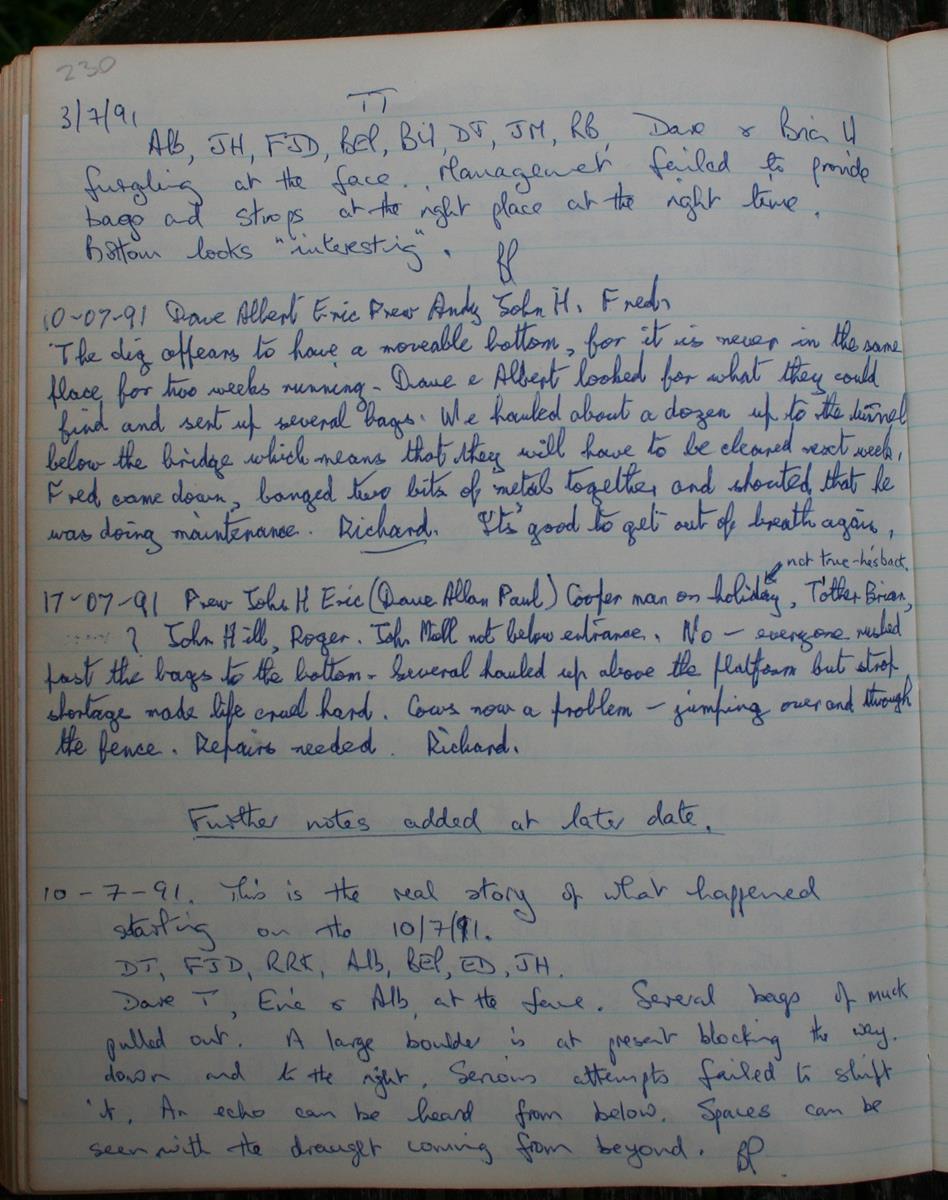 230
TT
3/7/91
Alb, JH, FJD, BEP, BH, DT, JM, RB, Dave & Brian H
furgling at the face. Management failed to provide
bags and strops at the right place at the right time.
Bottom looks "interesting".
10-07-91 Dave Albert Eric Prew Andy John H. Fred.
The dig appears to have a moveable bottom, for it is never in the same
place for two weeks running - Dave & Albert looked for what they could
find and sent up several bags. We hauled about a dozen up to the tunnel
below the bridge which means that they will have to be cleared next week.
Fred came down, banged two bits of metal together and shouted that he
was doing maintenance. Richard. It's good to get out of breath again.
not true - he's back.
17-07-91 Prew John H Eric (Dave Allan Paul) Cooper man on holiday, T'other Brian,
? John Hill, Roger. John Moll not below entrance. No - everyone rushed
past the bags to the bottom - Several hauled up above the platform but strop
shortage made life cruel hard. Cows now a problem - jumping over and through
the fence. Repairs needed. Richard.
Further notes added at later date.
10-7-91. This is the real story of what happened
starting on the 10/7/91.
DT, FJD, RRK, Alb, BEP, ED, JH.
Dave T, Eric & Alb, at the face. Several bags of muck
pulled out. A large boulder is at present blocking the way.
down and to the right. Serious attempts failed to shift
it. An echo can be heard from below. Spaces can be
seen with the draught coming from beyond.